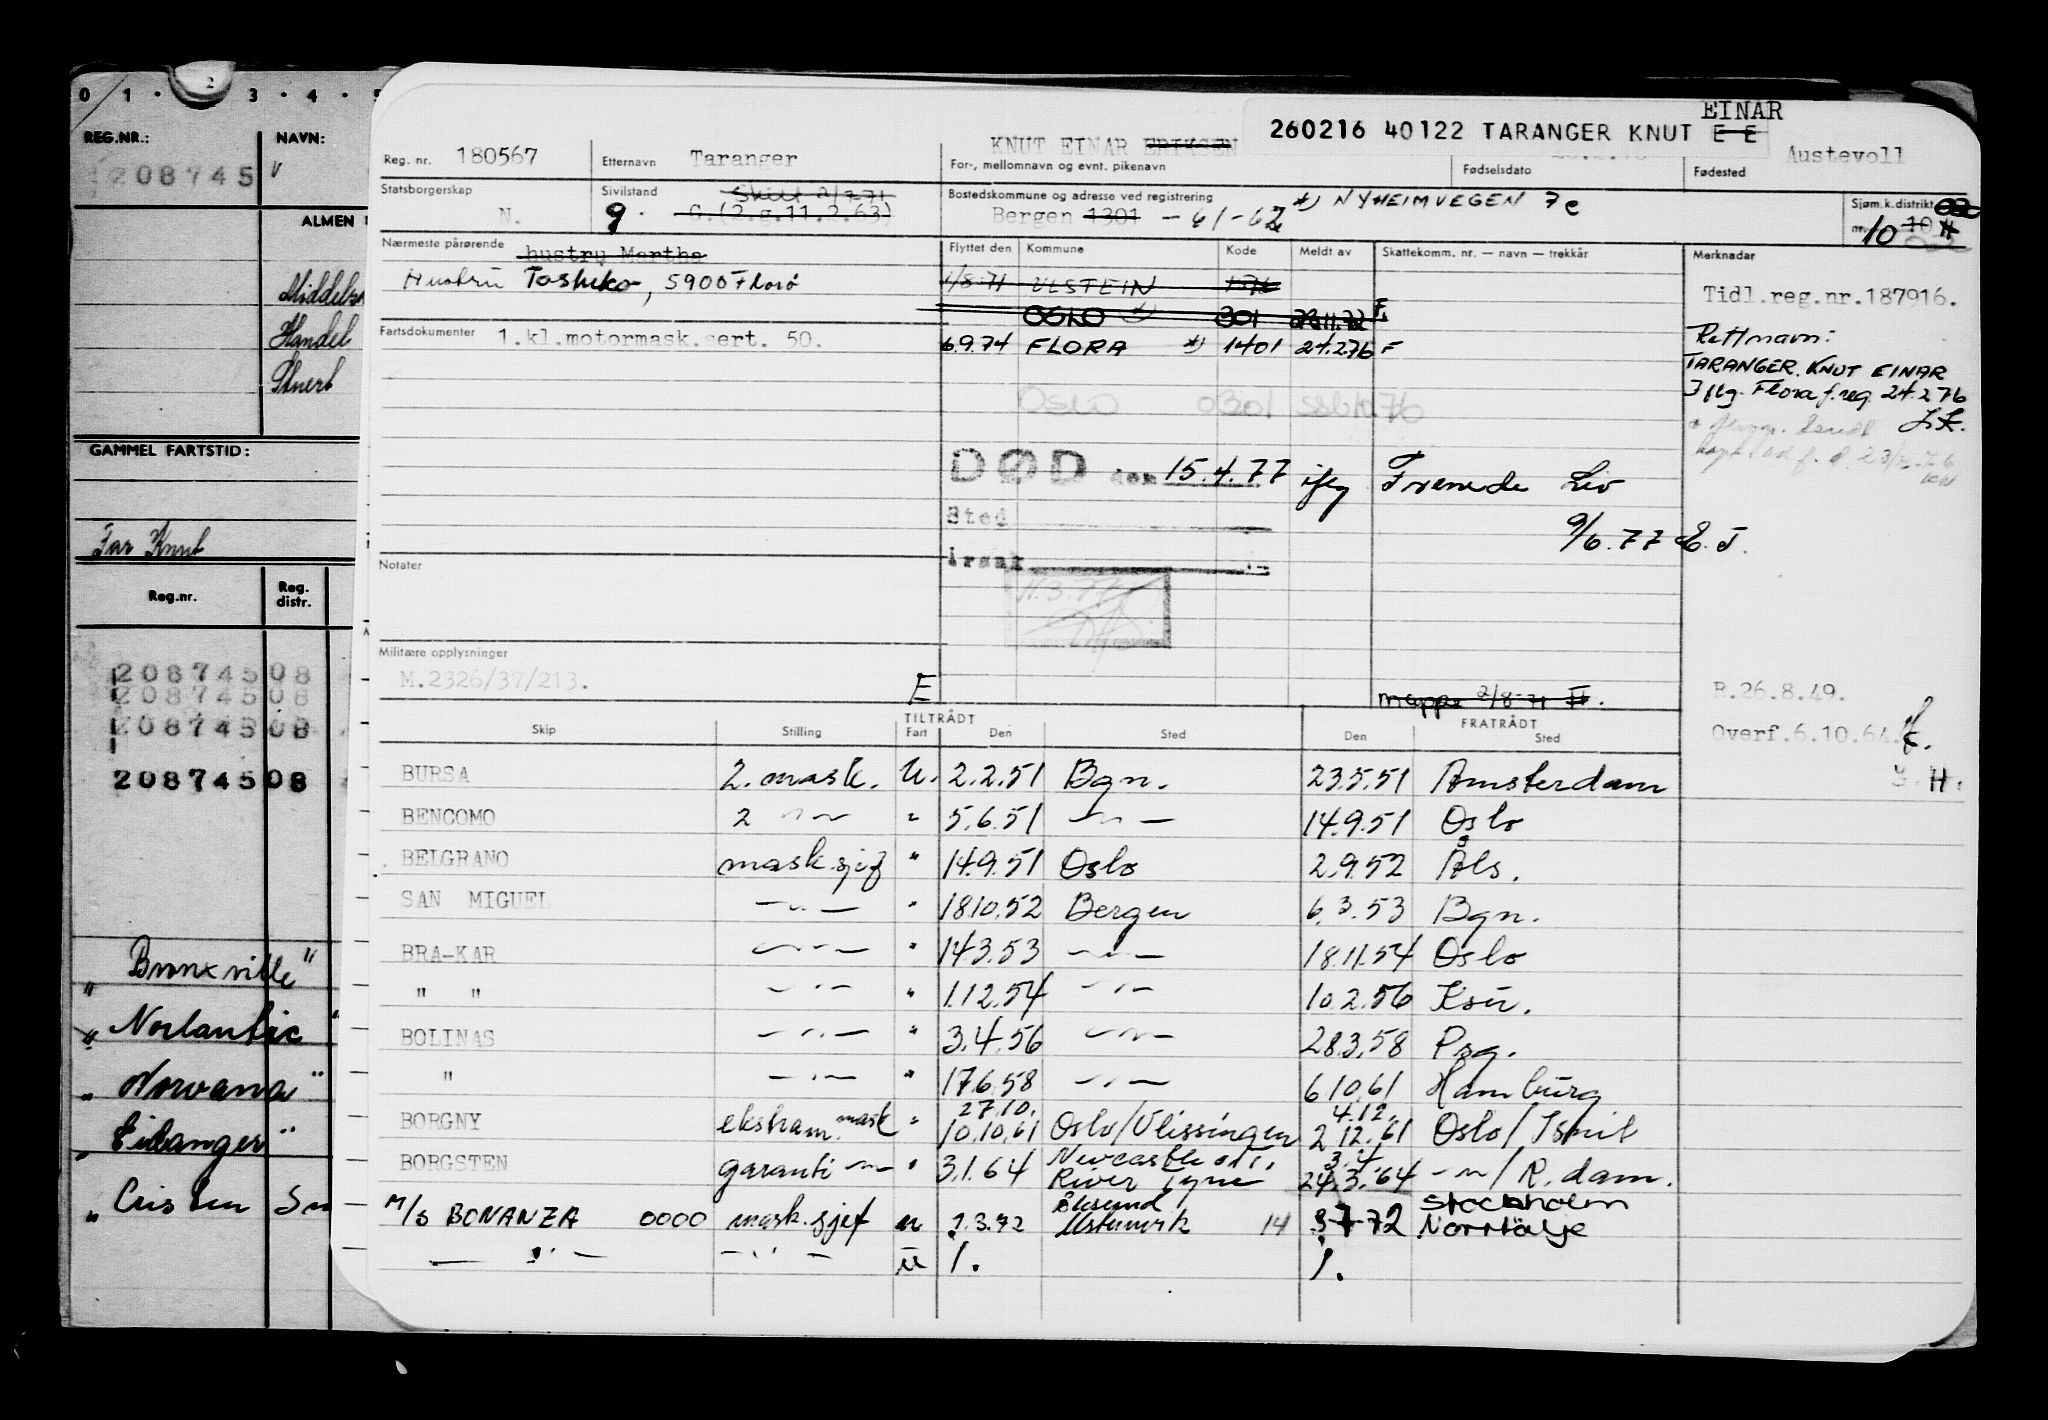 0 1 · 2 3 · 4 · 5
REG.NR.: NAVN:
208745
ALMEN
Handel
GAMMEL FARTSTID:
Far Knut
Reg.nr. Reg. distr.
20874508
20874508
20874508
20874508
" Bronxville"
" Norlantic "
" Norvana"
" Eidanger"
"
EINAR
260216 40122 TARANGER KNUT E E
Reg. nr. 180567 Etternavn Taranger KNUT EINAR ERIKSEN
For-, mellomnavn og evnt. pikenavn Fødselsdato Fødested Austevoll
Statsborgerskap N. Sivilstand g. Skilt 2/7 71 G.(2.g.11.2.63)
Bostedskommune og adresse ved registrering *) NYHEIMVEGEN 7c
Bergen 1301 - 61-62
Sjøm.k.distrikt nr. 10
Nærmeste pårørende hustru Martha
Hustru Toshiko, 5900 Florø
Flyttet den Kommune Kode Meldt av Skattekomm. nr. — navn — trekkår Merknadar
1/8-71 ULSTEIN
OSLO 301 28.11.72 F.
6.9.74 FLORA *) 1401 24.2.76 F
OSLO 0301
Tidl.reg.nr.187916.
Rett navn:
TARANGER. KNUT EINAR
Iflg. Flora f.reg. 24.2 76
Fartsdokumenter 1.kl.motormask.sert. 50.
DØD den 15.4.77 iflg Fremde Liv
9/6.77 E.T.
Sted
Årsak
Notater
11.3.77
Militære opplysninger
M.2326/37/213. E
mappe 2/8-71
R.26.8.49.
Overf.6.10.64.
TILTRÅDT FRATRÅDT
Skip Stilling Fart Den Sted Den Sted
BURSA 2. mask. U. 2.2.51 Bgn. 23.5.51 Amsterdam
BENCOMO 2 —"— " 5.6.51 —"— 14.9.51 Oslo
BELGRANO mask.sjef " 14.9.51 Oslo 2.9.52 Als.
SAN MIGUEL —"— " 18.10.52 Bergen 6.3.53 Bgn.
BRA-KAR —"— " 14.3.53 —"— 18.11.54 Oslo
" " —"— " 1.12.54 —"— 10.2.56 Ksu.
BOLINAS —"— " 3.4.56 —"— 28.3.58 Psg.
" —"— " 17.6.58 —"— 6.10.61 Hamburg
BORGNY ekstram.mask " 27.10. 10.10.61 Oslo/Vlissingen 4.12. 2.12.61 Oslo/Ismit
BORGSTEN garanti —"— " 3.1.64 Newcastle River Tyne 3.4. 24.3.64 —"—/R.dam.
M/S BONANZA 0000 mask.sjef u 7.3.72 Ålesund Ulsteinvik 14 8-7-72 Stockholm Norrtälje
— " — — " — u 1. 1.